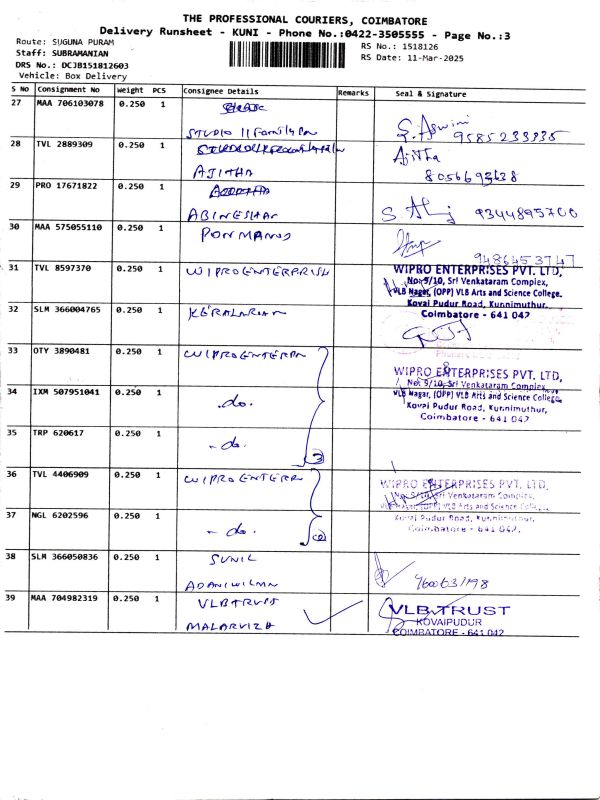 THE PROFESSIONAL COURIERS, COIMBATORE
Delivery Runsheet - KUNI - Phone No.:0422-3505555 - Page No.:3
Route: SUGUNA PURAM RS No.: 1518126
Staff: SUBRAMANIAN RS Date: 11-Mar-2025
DRS No.: DCJB151812603
Vehicle: Box Delivery
S No Consignment No Weight PCS Consignee Details Remarks Seal & Signature
27 MAA 706103078 0.250 1
STUDIO 11 S. Aswini 9585233335
28 TVL 2889309 0.250 1 Ajitha
AJITHA 8056693638
29 PRO 17671822 0.250 1
ABINESHAN 9344895700
30 MAA 575055110 0.250 1 PONMANO
9486453747
31 TVL 8597370 0.250 1 WIPROENTERPRISH WIPRO ENTERPRISES PVT. LTD,
No: 9/10, Sri Venkataram Complex,
VLB Nagar, (OPP) VLB Arts and Science College,
Kovai Pudur Road, Kunnimuthur,
Coimbatore - 641 042
32 SLM 366004765 0.250 1
33 OTY 3890481 0.250 1 WIPROENTERPN WIPRO ENTERPRISES PVT. LTD,
No: 9/10, Sri Venkataram Complex,
34 IXM 507951041 0.250 1 - do. VLB Nagar, (OPP) VLB Arts and Science College,
Kovai Pudur Road, Kunnimuthur,
Coimbatore - 641 042
35 TRP 620617 0.250 1 - do. 3
36 TVL 4406909 0.250 1 WIPROENTERPN WIPRO ENTERPRISES PVT. LTD.
No: 9/10, Sri Venkataram Complex,
VLB Nagar, (OPP) VLB Arts and Science College,
37 NGL 6202596 0.250 1 - do. Kovai Pudur Road, Kunnimuthur,
Coimbatore - 641 042.
38 SLM 366050836 0.250 1 SUNIL
39 MAA 704982319 0.250 1 VLBTRUST VLB TRUST
MALARVIZH KOVAIPUDUR
COIMBATORE - 641 042